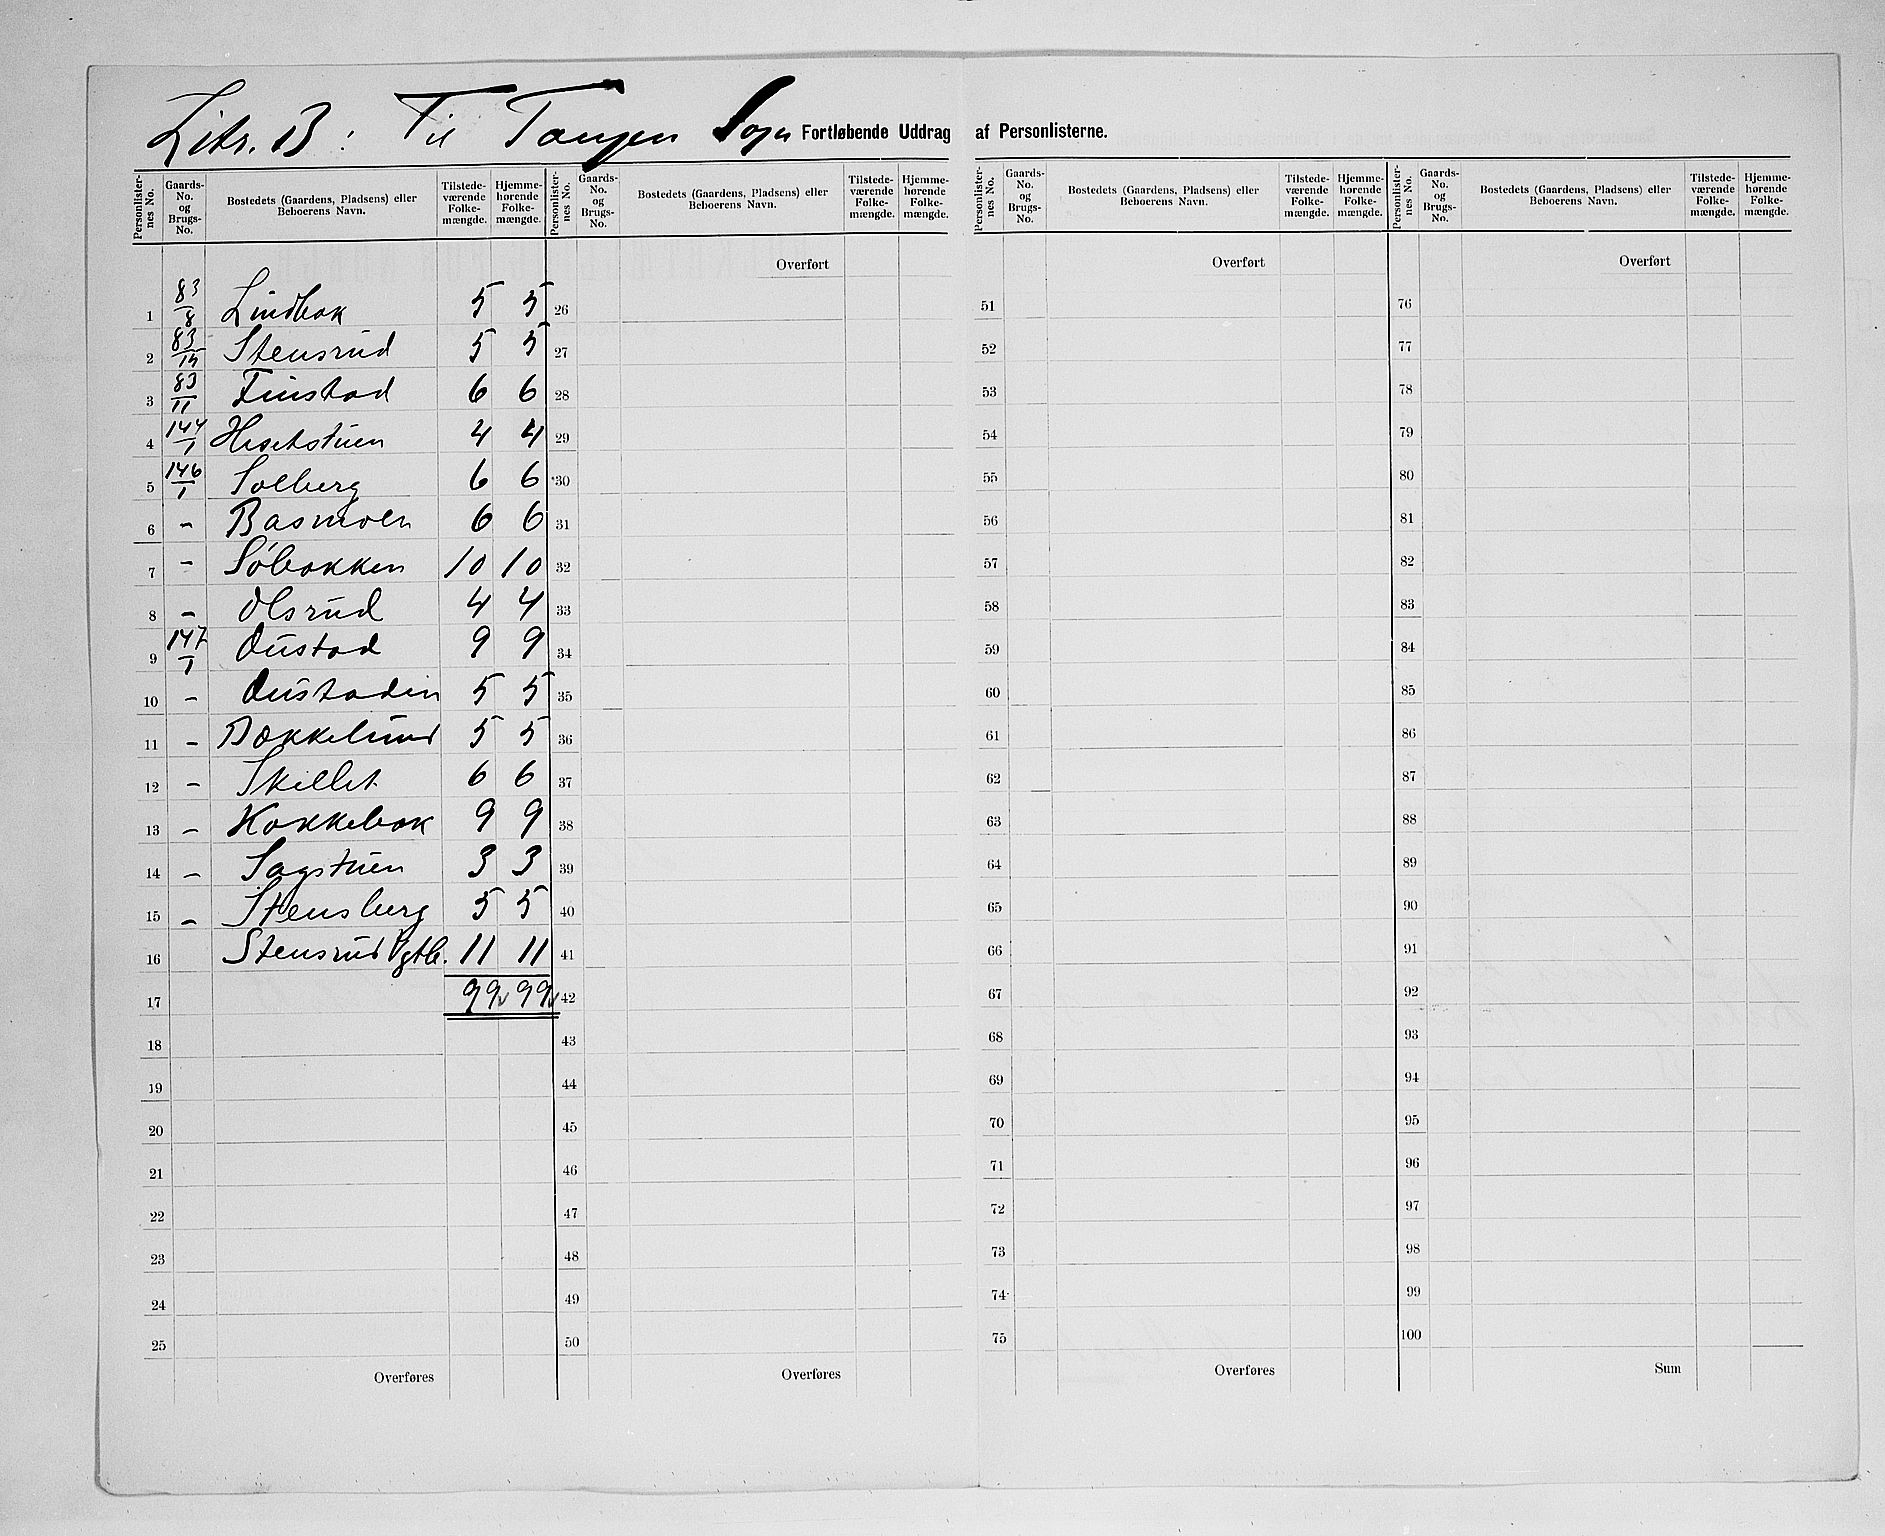 Litr. B: Til Tangen Sogn Fortløbende Uddrag af Personlisterne.
Personlisternes No. Gaards-No. og Brugs-No. Bostedets (Gaardens, Pladsens) eller Beboerens Navn. Tilstedeværende Folkemængde. Hjemmehørende Folkemængde. Personlisternes No. Gaards-No. og Brugs-No. Bostedets (Gaardens, Pladsens) eller Beboerens Navn. Tilstedeværende Folkemængde. Hjemmehørende Folkemængde. Personlisternes No. Gaards-No. og Brugs-No. Bostedets (Gaardens, Pladsens) eller Beboerens Navn. Tilstedeværende Folkemængde. Hjemmehørende Folkemængde. Personlisternes No. Gaards-No. og Brugs-No. Bostedets (Gaardens, Pladsens) eller Beboerens Navn. Tilstedeværende Folkemængde. Hjemmehørende Folkemængde.
Overført Overført Overført
1 83/8 Lindbak 5 5 26 51 76
2 83/15 Stensrud 5 5 27 52 77
3 83/11 Finstad 6 6 28 53 78
4 144/1 4 4 29 54 79
5 146/1 Solberg 6 6 30 55 80
6 - Basmoen 6 6 31 56 81
7 - Søbakken 10 10 32 57 82
8 - Olsrud 4 4 33 58 83
9 147/1 Oustad 9 9 34 59 84
10 - 5 5 35 60 85
11 - Bækkelund 5 5 36 61 86
12 - Skillet 6 6 37 62 87
13 - Kakkebak 9 9 38 63 88
14 - Sagstuen 3 3 39 64 89
15 - Stensberg 5 5 40 65 90
16 Stensrud 11 11 41 66 91
17 99 99 42 67 92
18 43 68 93
19 44 69 94
20 45 70 95
21 46 71 96
22 47 72 97
23 48 73 98
24 49 74 99
25 50 75 100
Overføres Overføres Overføres Sum